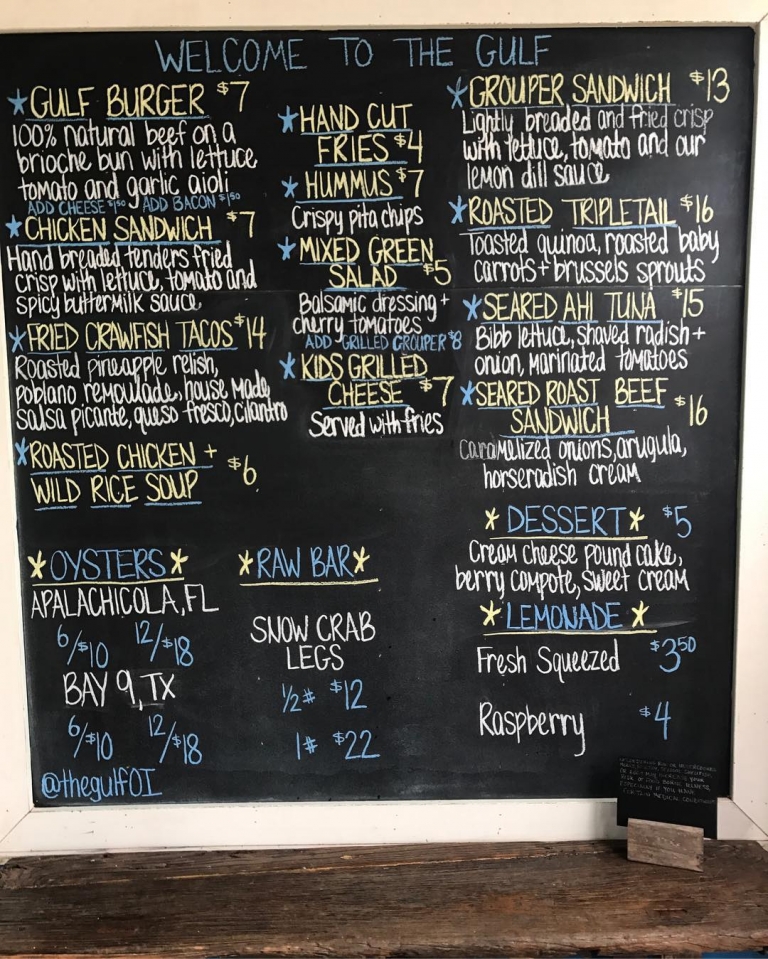 WELCOME TO THE GULF
*GULF BURGER $7
100% natural beef on a
brioche bun with lettuce
tomato and garlic aioli
ADD CHEESE $1.50 ADD BACON $1.50
*CHICKEN SANDWICH $7
Hand breaded tenders fried
crisp with lettuce, tomato and
spicy buttermilk sauce
*FRIED CRAWFISH TACOS $14
Roasted pineapple relish,
poblano remoulade, house made
salsa picante, queso fresco, cilantro
*ROASTED CHICKEN +
WILD RICE SOUP $6
*HAND CUT
FRIES $4
*HUMMUS $7
Crispy pita chips
*MIXED GREEN
SALAD $5
Balsamic dressing +
cherry tomatoes
ADD GRILLED GROUPER $8
*KIDS GRILLED
CHEESE $7
Served with fries
*GROUPER SANDWICH $13
Lightly breaded and fried crisp
with lettuce, tomato and our
lemon dill sauce
*ROASTED TRIPLETAIL $16
Toasted quinoa, roasted baby
carrots + brussels sprouts
*SEARED AHI TUNA $15
Bibb lettuce, shaved radish +
onion, marinated tomatoes
*SEARED ROAST BEEF
SANDWICH $16
caramelized onions, arugula,
horseradish cream
*OYSTERS*
APALACHICOLA, FL
6/$10 12/$18
BAY 9, TX
6/$10 12/$18
@thegulfOI
*RAW BAR*
SNOW CRAB
LEGS
1/2# $12
1# $22
*DESSERT* $5
Cream cheese pound cake,
berry compote, sweet cream
*LEMONADE*
Fresh Squeezed $3.50
Raspberry $4